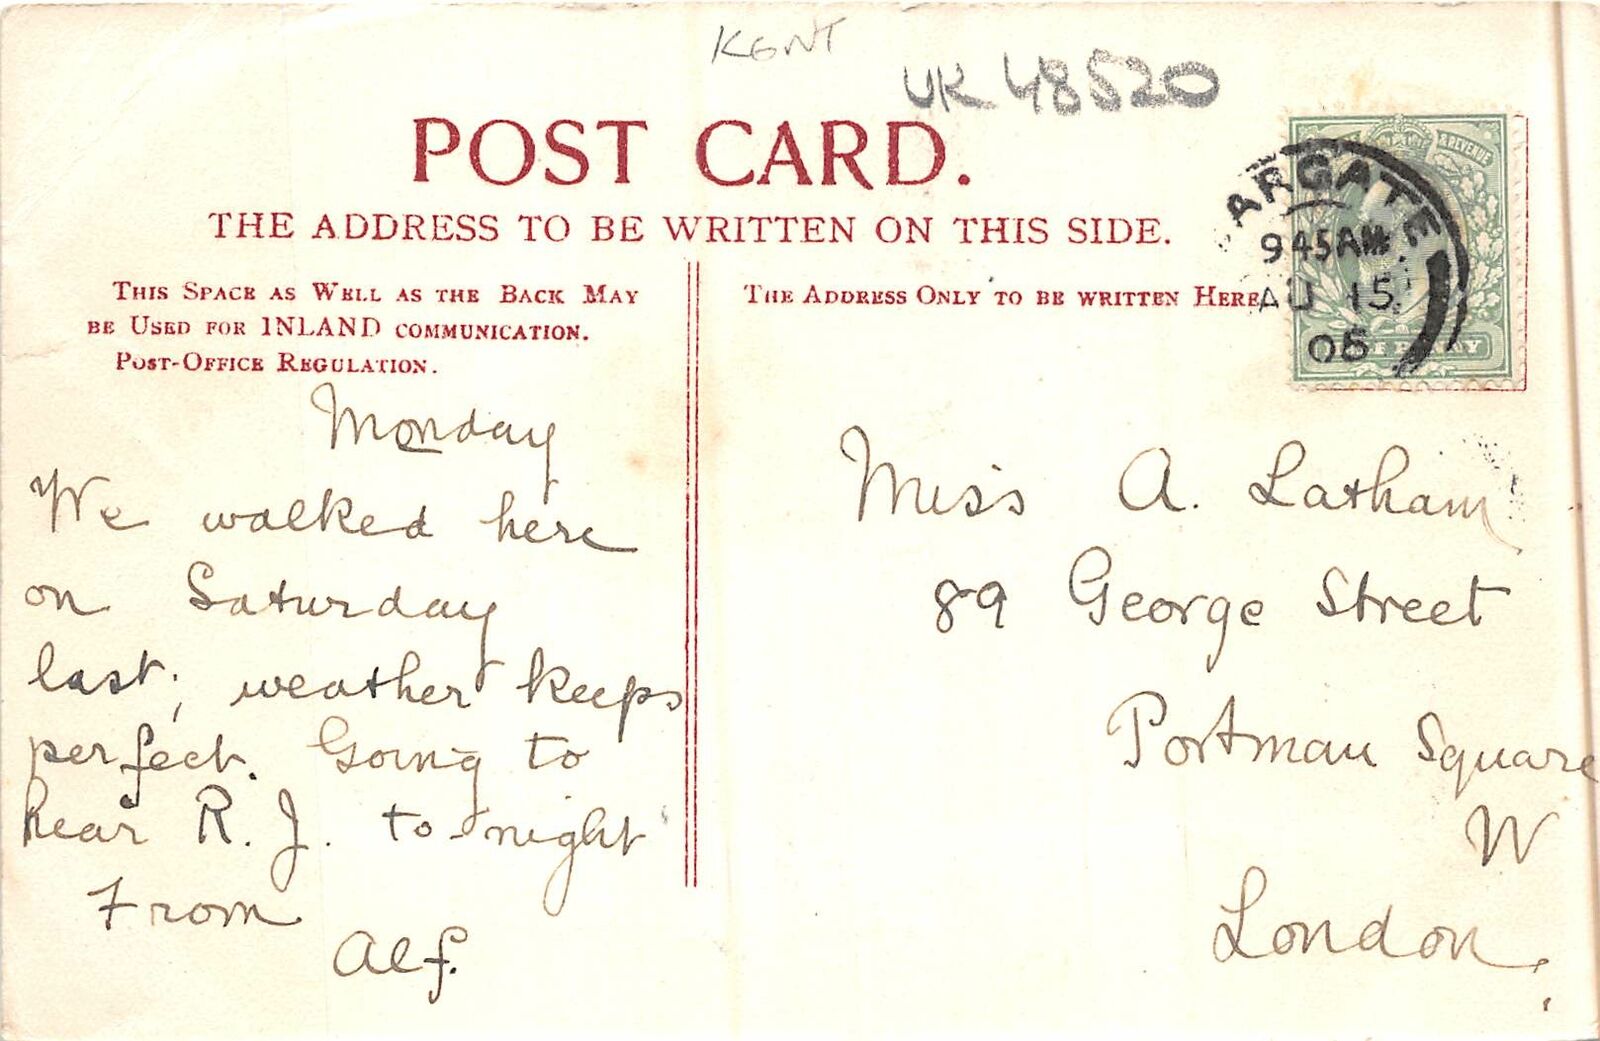 KENT
UK 48520
POST CARD.
THE ADDRESS TO BE WRITTEN ON THIS SIDE.
THIS SPACE AS WELL AS THE BACK MAY
BE USED FOR INLAND COMMUNICATION.
POST-OFFICE REGULATION.
Monday
We walked here
on Saturday
last; weather keeps
perfect. Going to
hear R. J. to-night
From
Alf.
THE ADDRESS ONLY TO BE WRITTEN HERE
& REVENUE
ARGATE
945AM
AU 15
06
PENNY
Miss A. Latham
89 George Street
Portman Square
W
London.